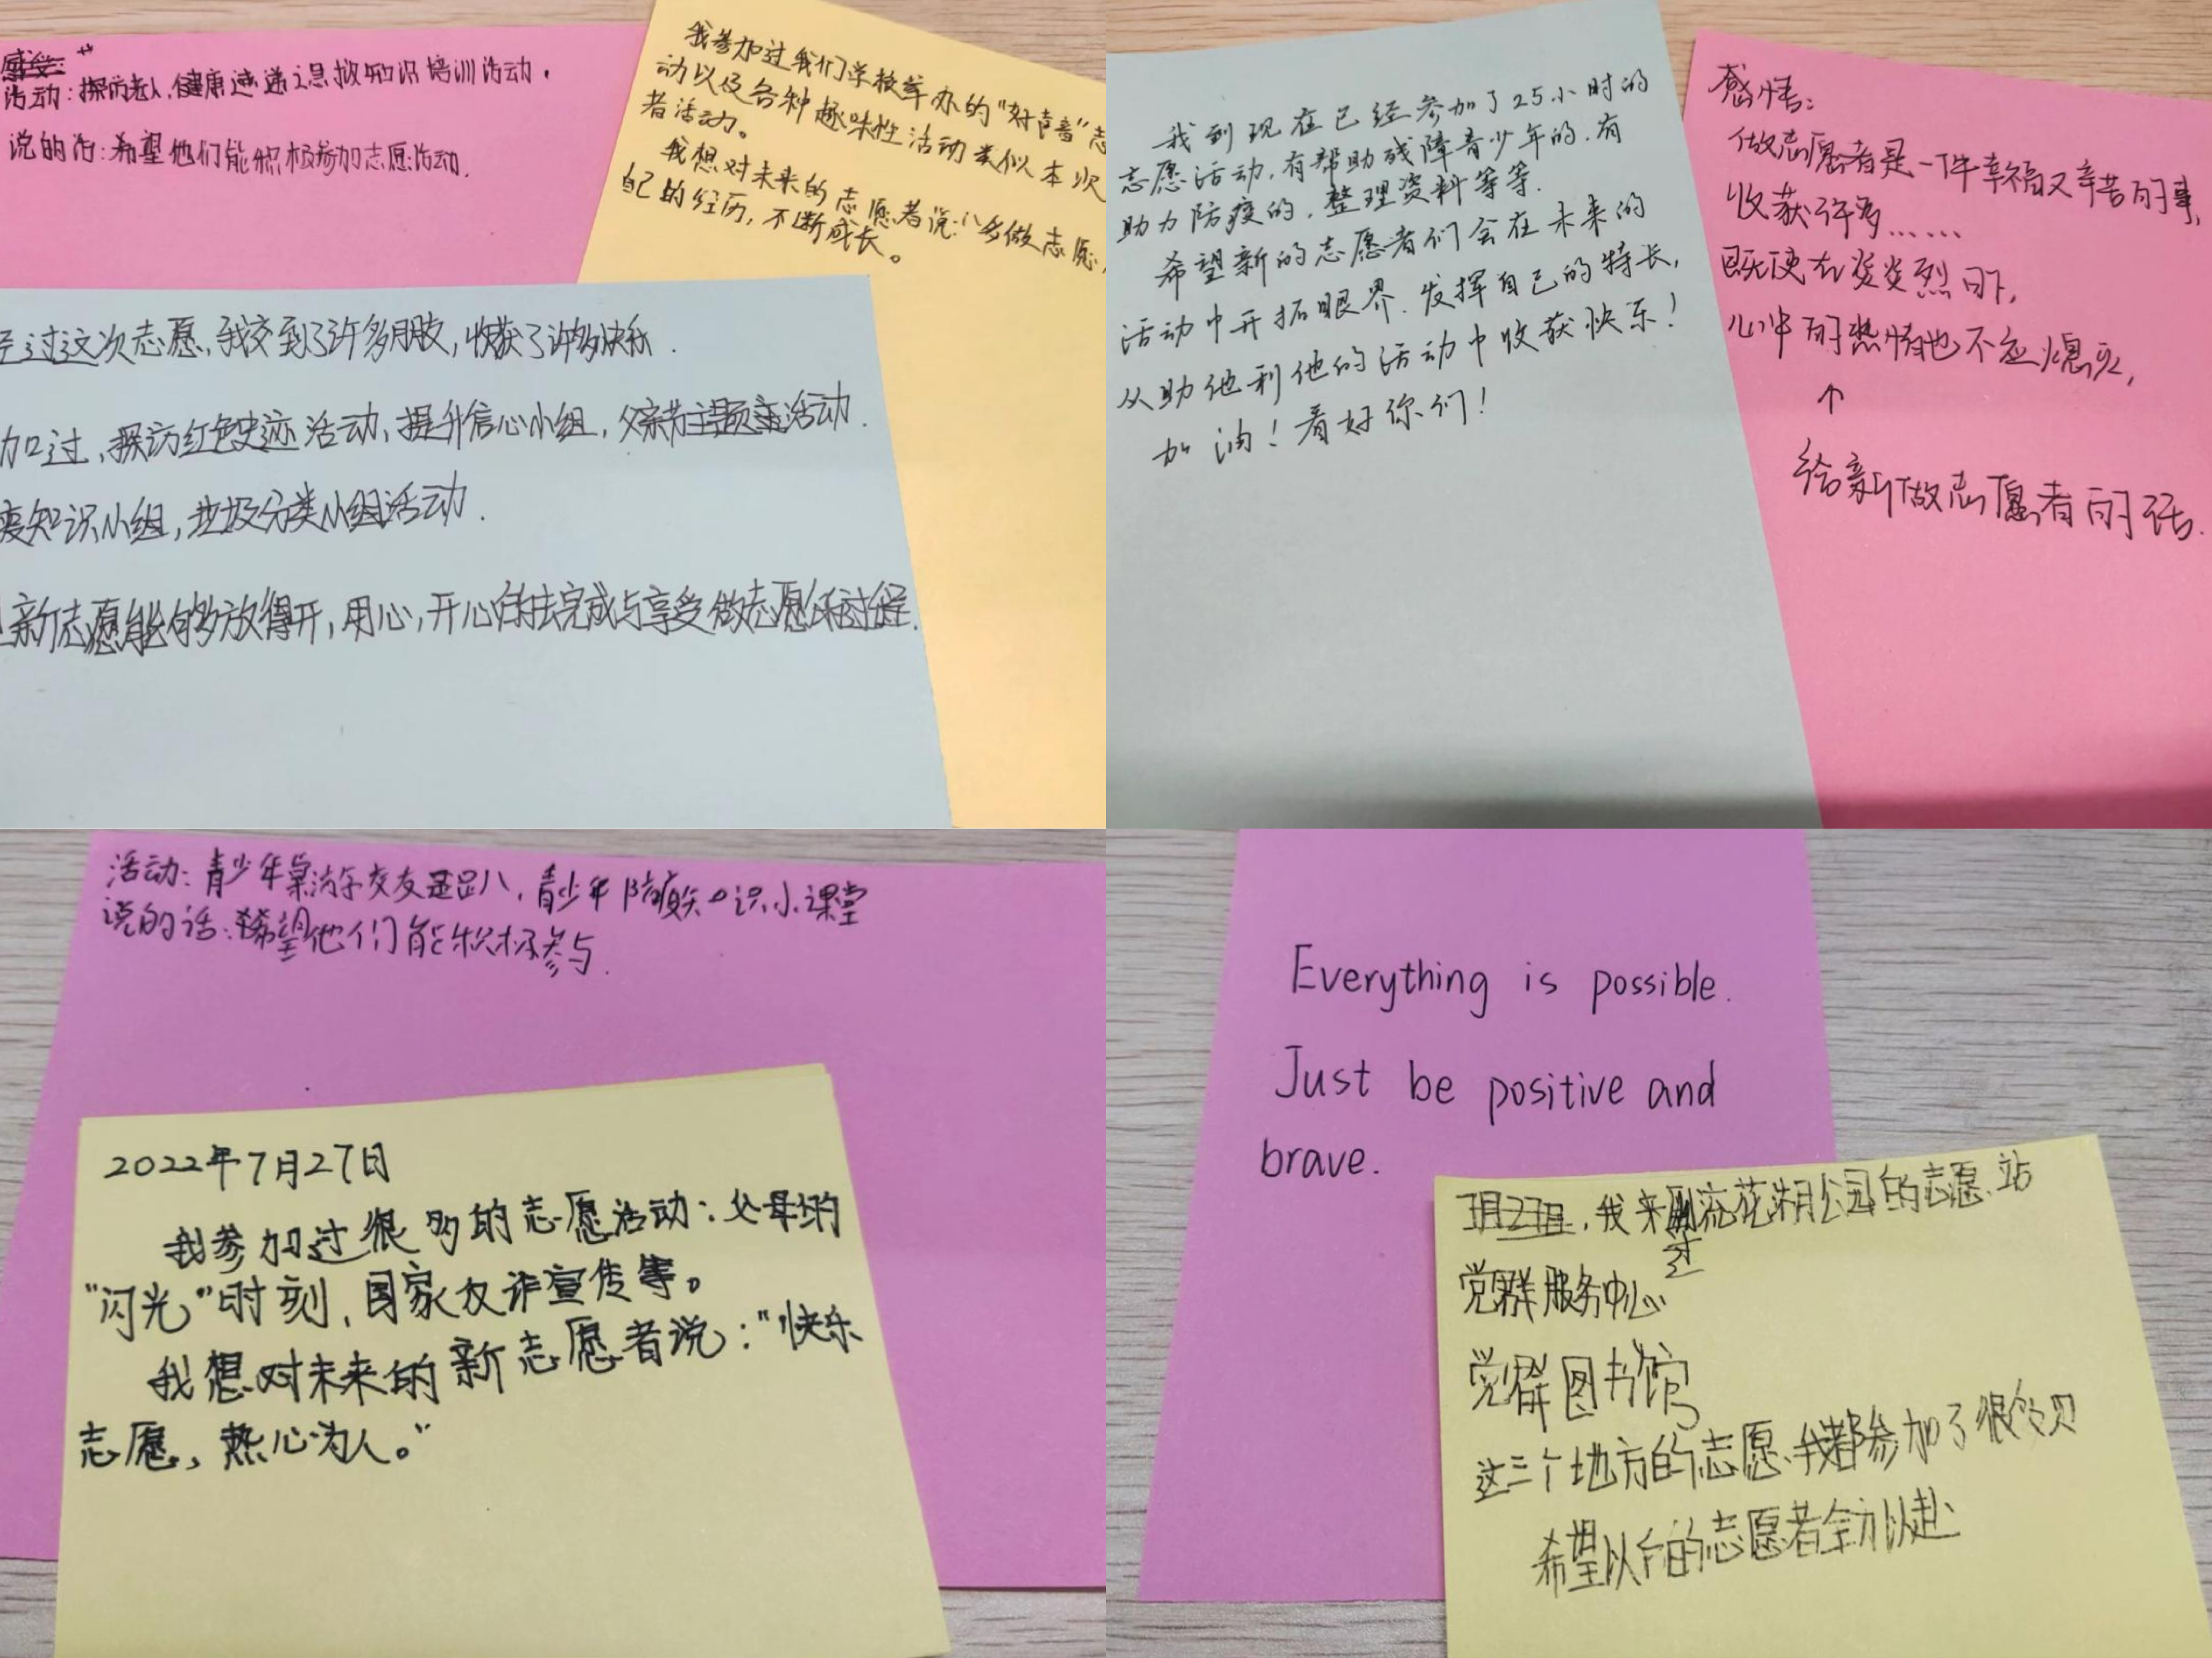 活动:探访老人,健康速递之急救知识培训活动.
说的话:希望他们能积极参加志愿活动.
我参加过我们学校举办的“好声音”志
动以及各种趣味性活动类似本次
者活动。
我想对未来的志愿者说:多做志愿,
自己的经历,不断成长。
过这次志愿,我交到了许多朋友,收获了许多快乐.
加过,探访红色史迹活动,提升信心小组,父亲节主题活动.
知识小组,垃圾分类小组活动.
新志愿能够放得开,用心,开心的去完成与享受做志愿的过程.
我到现在已经参加了25小时的
志愿活动,有帮助残障青少年的.有
助力防疫的,整理资料等等.
希望新的志愿者们会在未来的
活动中开拓眼界.发挥自己的特长,
从助他利他的活动中收获快乐!
加油!看好你们!
感悟:
做志愿者是一件幸福又辛苦的事,
收获许多……
既使在炎炎烈日下,
心中的热情也不应熄灭,
↑
给新做志愿者的话.
活动:青少年桌游交友,青少年防疫知识小课堂
说的话:希望他们能积极参与.
2022年7月27日
我参加过很多的志愿活动:父母的
“闪光”时刻,国家反诈宣传等。
我想对未来的新志愿者说:“快乐
志愿,热心为人。”
Everything is possible.
Just be positive and
brave.
7月27日,我来过荷花湖公园的志愿站
党群服务中心
党群图书馆
这三个地方的志愿,我都参加了很多次
希望以后的志愿者全力以赴